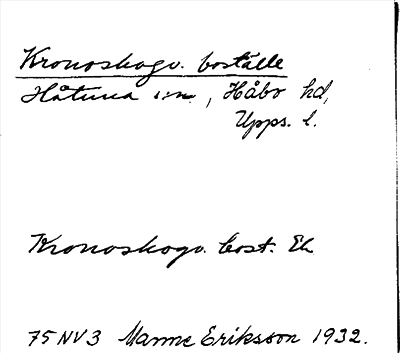 Kronoskogv. boställe
Håtuna sn, Håbo hd,
Upps. l.
Kronoskogv. bost. Eh
75 NV 3 Manne Eriksson 1932.